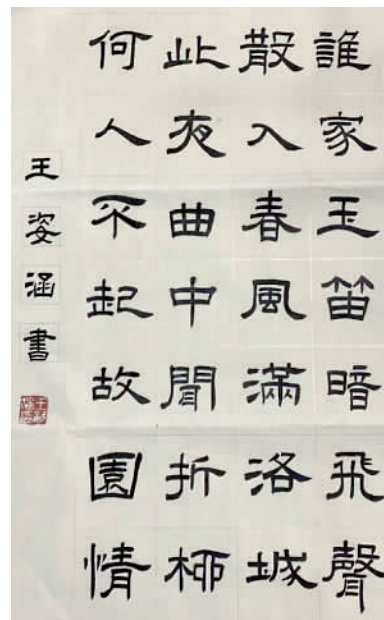 誰家玉笛暗飛聲
散入春風滿洛城
此夜曲中聞折柳
何人不起故園情
王姿涵書